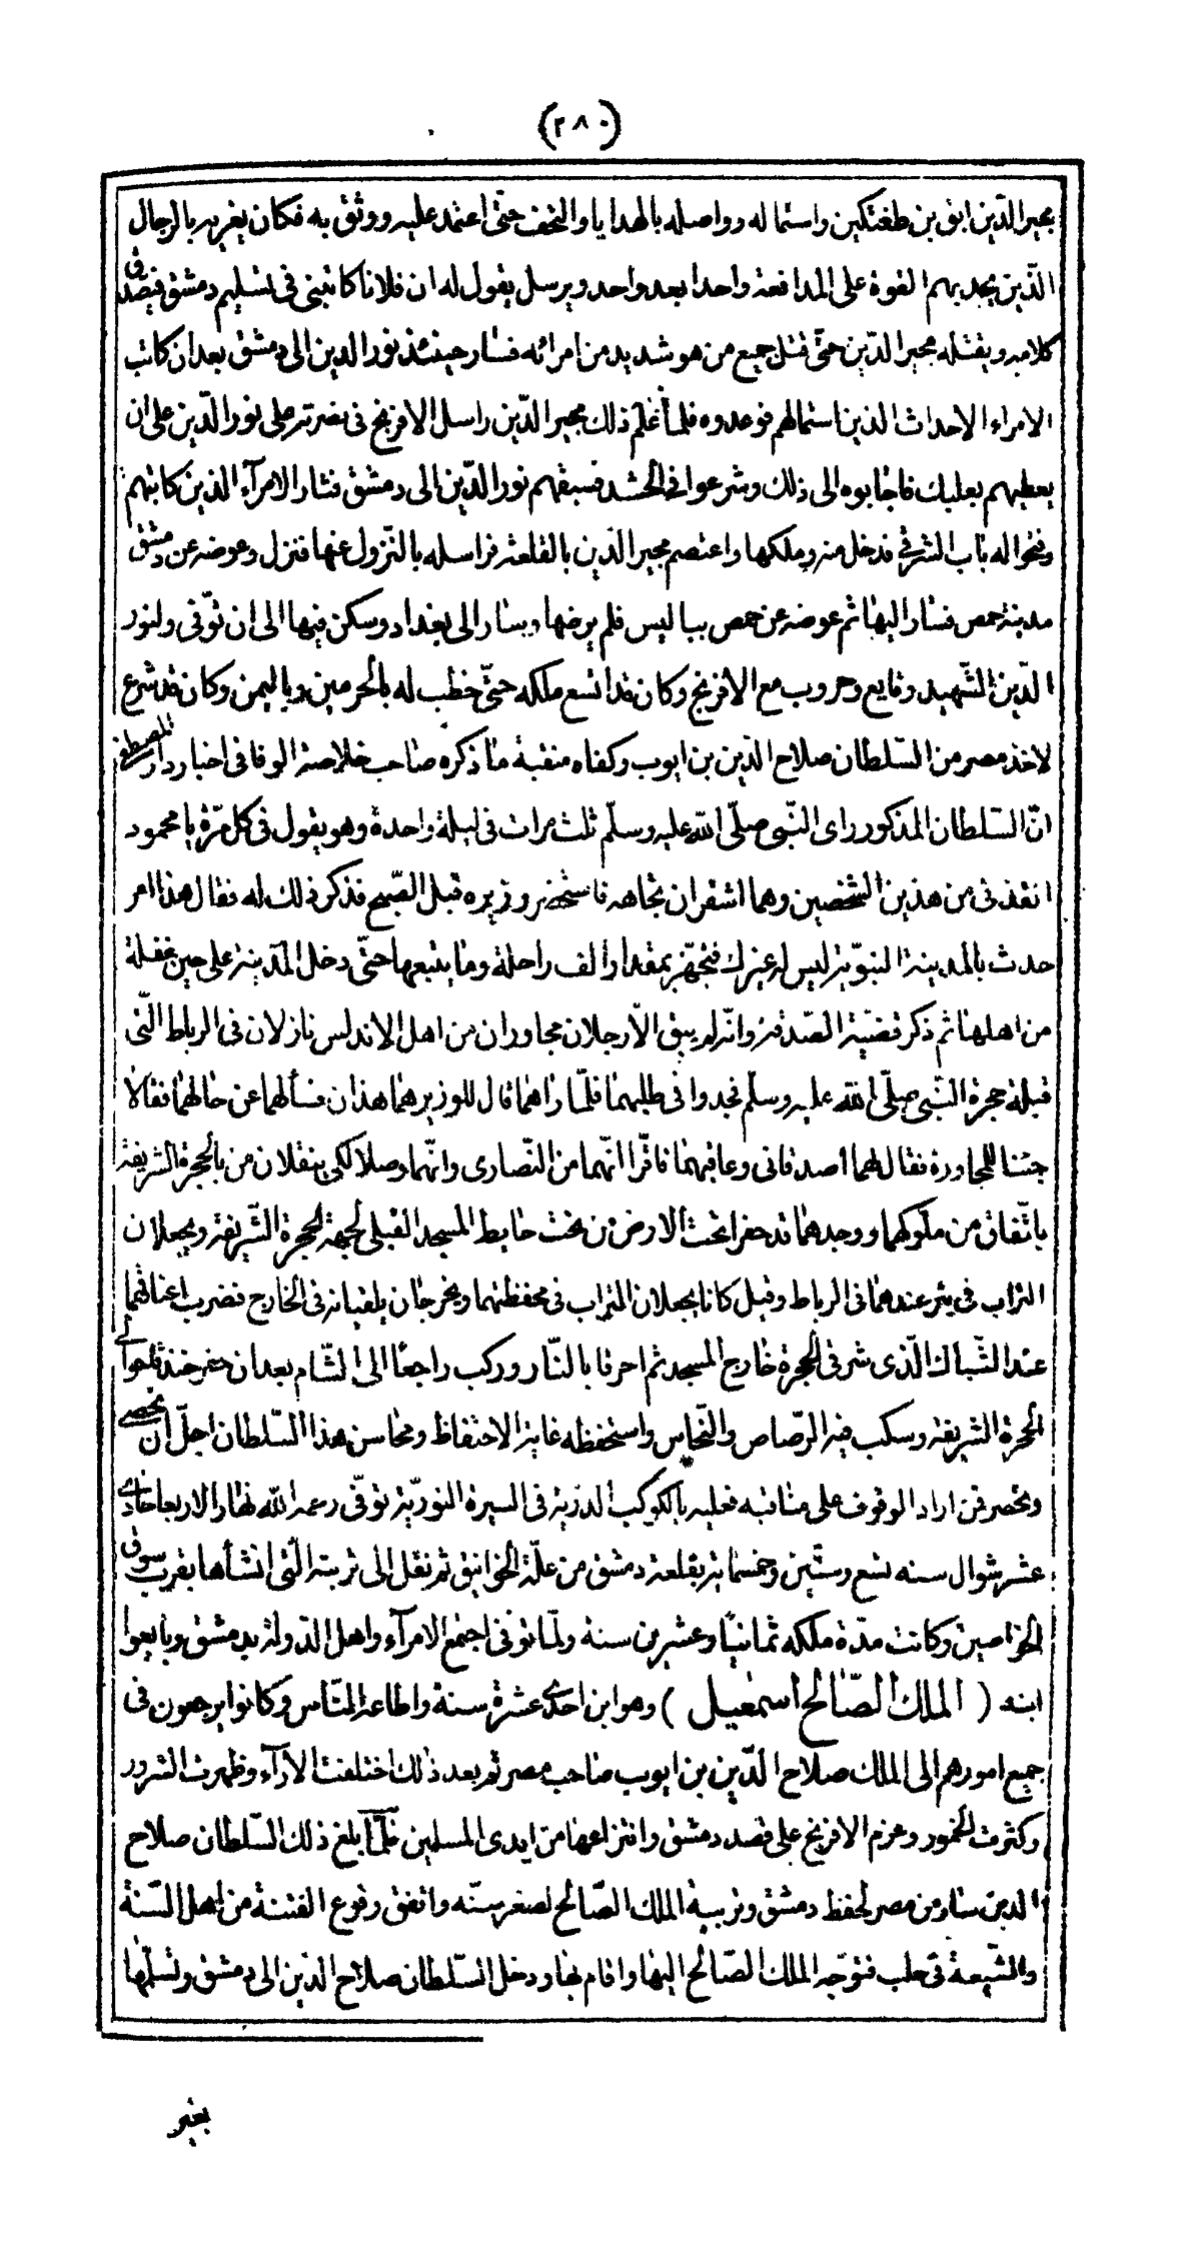 (٢٨٠)
مجير الدّين ابق بن طغتكين واستما له وواصله بالهدايا والتحف حتّى اعتمد عليه ووثق به فكان يغريه بالرجال
الذّين يجد بهم القوة على المدافعة واحدا بعد واحد ويرسل يقول له ان فلانا كاتبنى فى تسليم دمشق فيصدق
كلامه ويقتله مجير الدّين حتّى قتل جميع من هو شديد من امرائه فسار حينئذ نور الدين الى دمشق بعد ان كاتب
الامراء الاحداث الذين استمالهم فوعدوه فلما علم ذلك مجير الدّين راسل الافرنج فى نصرته على نور الدّين على ان
يعطيهم بعلبك فاجابوه الى ذلك وشرعوا فى الحشد فسبقهم نور الدّين الى دمشق فثار الامرآء الذين كاتبهم
وفتحوا له باب الشرقى فدخل منه وملكها واعتصم مجير الدّين بالقلعة فراسله بالنّزول عنها فنزل وعوضه عن دمشق
مدينة حمص فسار اليها ثم عوضه عن حمص ببا ليس فلم يرضها وسار الى بغداد وسكن فيها الى ان توّفى ولنور
الدّين الشّهيد وقايع وحروب مع الافرنج وكان قد اتسع ملكه حتّى خطب له بالحرمين وباليمن وكان قد شرع
لاخذ مصر من السّلطان صلاح الدّين بن ايوب وكفاه منقبة ما ذكره صاحب خلاصة الوفا فى اخبار دار المصطفى
انّ السّلطان المذكور راى النّبى صلّى الله عليه وسلّم ثلث مرات فى ليلة واحدة وهو يقول فى كل مرّة يا محمود
انقذ نى من هذين الشخصين وهما اشقران تجاهه فاستحضر وزيره قبل الصّبح فذكر ذلك له فقال هذا امر
حدث بالمدينة النبوّية ليس له غيرك فتجهّز بمقدار الف راحلة وما يتبعها حتّى دخل المدينة على حين غفلة
من اهلها ثم ذكر قضيّة الصّدقة وانّه لم يبق الاّ رجلان مجاوران من اهل الاندلس نازلان فى الرباط الّتى
قبلة حجرة النّبى صلّى الله عليه وسلّم فجدوا فى طلبهما فلمّا راهما قال للوزير هما هذان فسألهما عن حالهما فقالا
جئنا للمجاورة فقال لهما اصدقانى وعاقبهما فاقرّا انّهما من النّصارى وانّهما وصلا لكى ينقلا من بالحجرة الشريفة
باتّفاق من ملوكهما ووجدهما قد حفرا تحت الارض من تحت حايط المسجد القبلى لجهة الحجرة الشّريفة ويجعلان
التراب فى بئر عندهما فى الرباط وقيل كانا يجعلان التراب فى محفظتهما ويخرجان يلقيانه فى الخارج فضرب اعناقهما
عند الشّباك الّذى شرفى الحجرة خارج المسجد ثم احرقا بالنّار وركب راجعًا الى الشّام بعد ان حفر خندقا حوالى
الحجرة الشريفة وسكب فيه الرّصاص والنّحاس واستحفظه غاية الاحتفاظ ومحاسن هذا السّلطان اجلّ ان تحصى
وتحصر فمن اراد الوقوف على مناقبه فعليه بالكوكب الدرّية فى السيرة النوريّة توفّى رحمه الله نهار الاربعا حادى
عشر شوال سنه تسع وستّين وخمسماية بقلعة دمشق من علّة الخوانيق ثم نقل الى تربته الّتى انشأها بقرب سوق
الخواصين وكانت مدّة ملكه ثمانيًا وعشرين سنة ولمّا توفى اجتمع الامرآء واهل الدّولة بدمشق وبايعوا
ابنه ( الملك الصّالح اسمعيل ) وهو ابن احدى عشرة سنة واطاعه النّاس وكانوا يرجعون فى
جميع امورهم الى الملك صلاح الدّين بن ايوب صاحب مصر ثم بعد ذلك اختلفت الآراء وظهرت الشرور
وكثرت الخمور وعزم الافرنج على قصد دمشق وانتزاعها من ايدى المسلمين فلمّا بلغ ذلك السّلطان صلاح
الدين سار من مصر لحفظ دمشق وتربية الملك الصّالح لصغر سنّه واتفق وقوع الفتنة من اهل السّنة
والشّيعة فى حلب فتوجّه الملك الصّالح اليها واقام بها ودخل السّلطان صلاح الدّين الى دمشق وتسلّمها
بغير